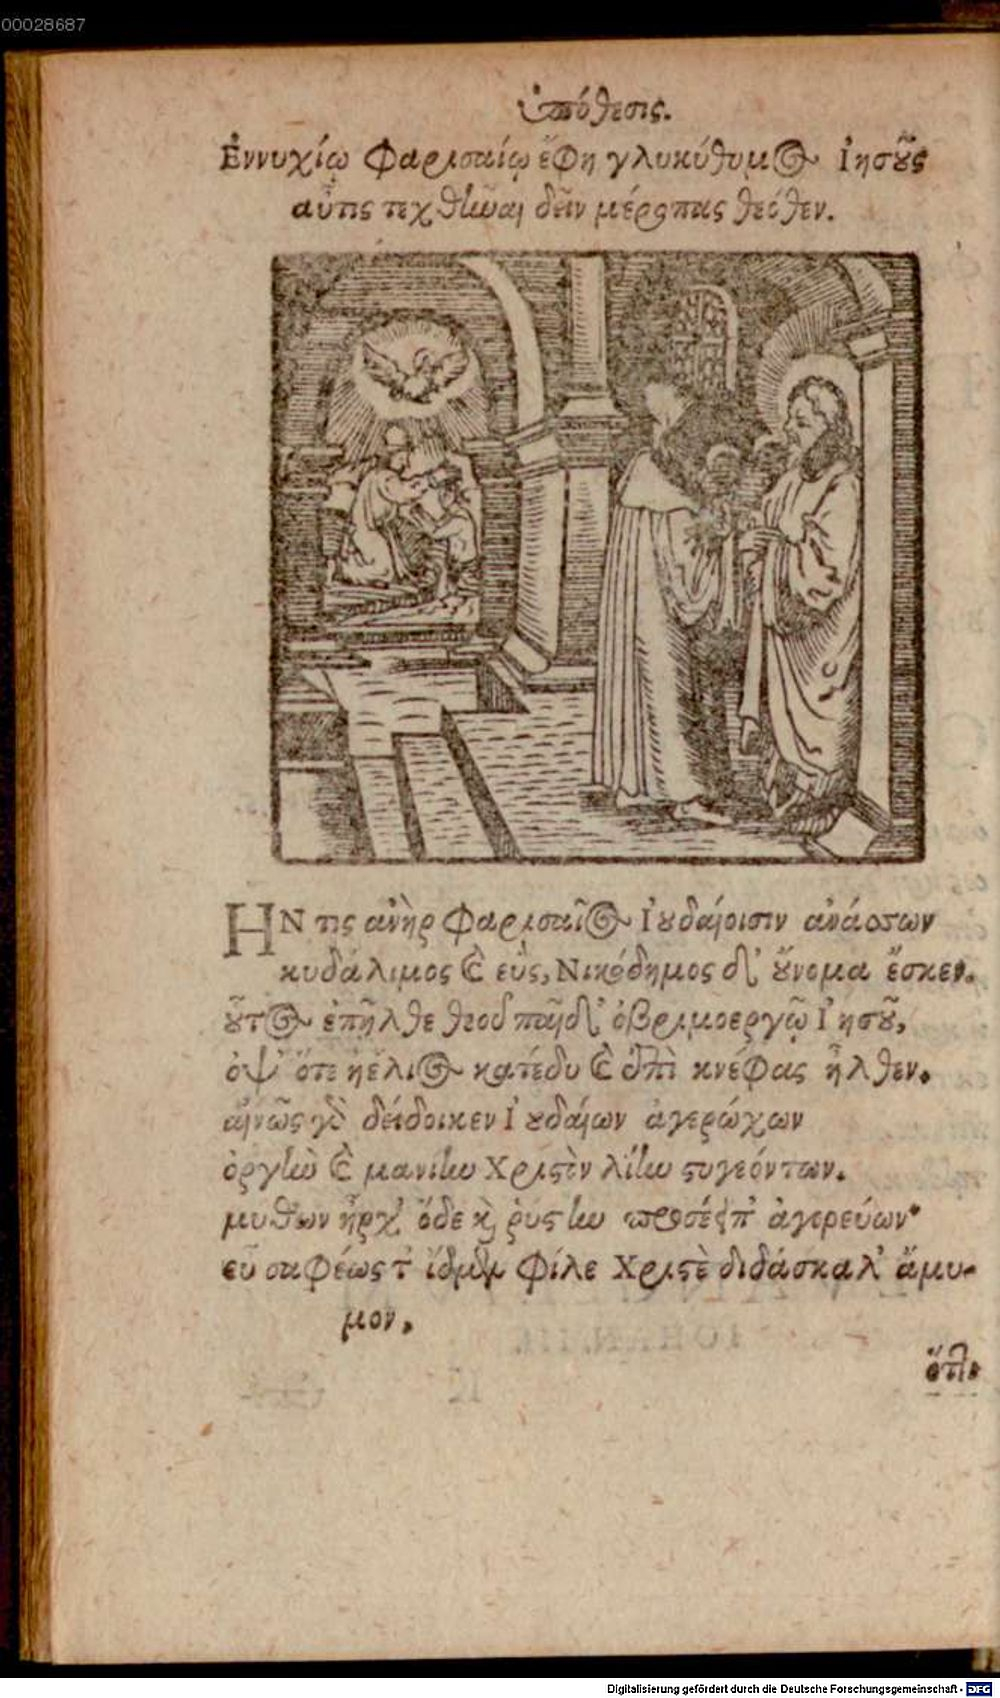 00028687
ὑπόθεσις.
Ἐννυχίῳ Φαρισαίῳ ἔφη γλυκύθυμος Ἰησοῦς
αὖτις τεχθῆναι δεῖν μέροπας θεόθεν.
ΗΝ τις ἀνὴρ Φαρισαῖος Ἰουδαίοισιν ἀνάσσων
κυδάλιμος καὶ εὖς, Νικόδημος δ' οὔνομα ἔσκεν.
οὗτος ἐπῆλθε θεοῦ παῖδ' ὀβριμοεργῷ Ἰησοῦ,
ὀψ' ὅτε ἠέλιος κατέδυ καὶ ἐπὶ κνέφας ἦλθεν.
αἰνῶς γὰρ δείδοικεν Ἰουδαίων ἀγερώχων
ὀργὴν καὶ μανίην Χριστὸν λίην στυγεόντων.
μύθων ἦρχ' ὅδε καὶ ῥύστην προσέειπ' ἀγορεύων·
εὖ σαφέως τ' ἴδμεν φίλε Χριστὲ διδάσκαλ' ἄμυ-
μον,
ὅτι
Digitalisierung gefördert durch die Deutsche Forschungsgemeinschaft - DFG